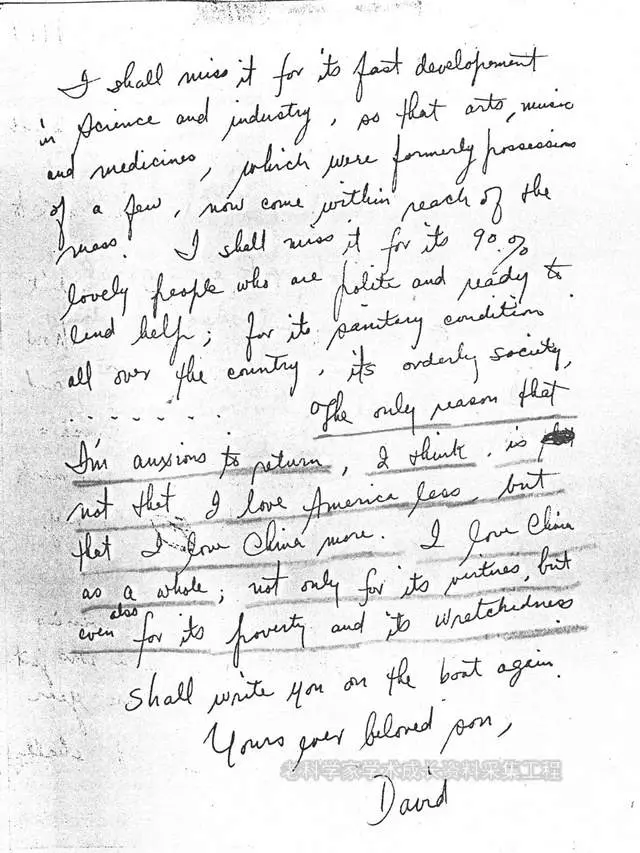 I shall miss it for its fast developement
in science and industry, so that arts, music
and medicines, which were formerly possession
of a few, now come within reach of the
mass. I shall miss it for its 90%
lovely people who are polite and ready to
lend help; for its sanitary condition
all over the country, its orderly society,
. . . . . . . The only reason that
I'm anxious to return, I think, is
not that I love America less, but
that I love China more. I love China
as a whole; not only for its virtues, but
even also for its poverty and its wretchedness
Shall write you on the boat again.
Yours ever beloved son,
老科学家学术成长资料采集工程
David